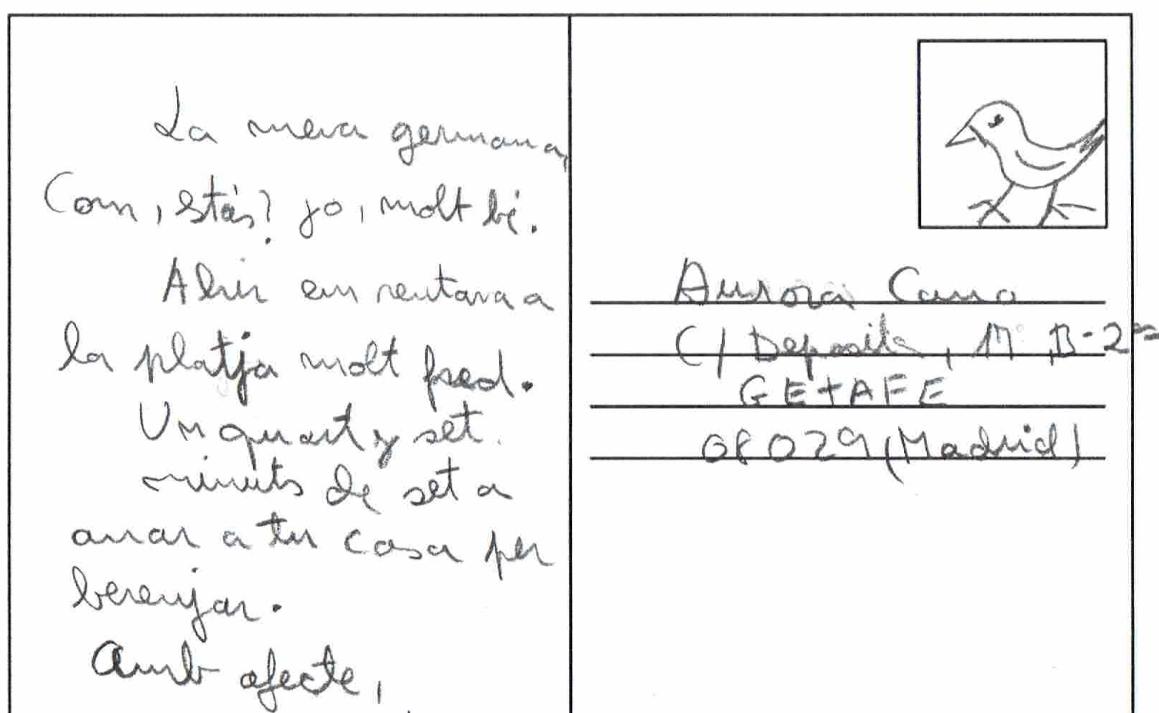 La meva germana,
Com, estàs? jo, molt bé.
Ahir em rentava a
la platja molt fred.
Un quart y set
minuts de set a
anar a tu casa per
berenjar.
Amb afecte,
Aurora Cano
C/ Deposit, B-2
GETAFE
08029 (Madrid)